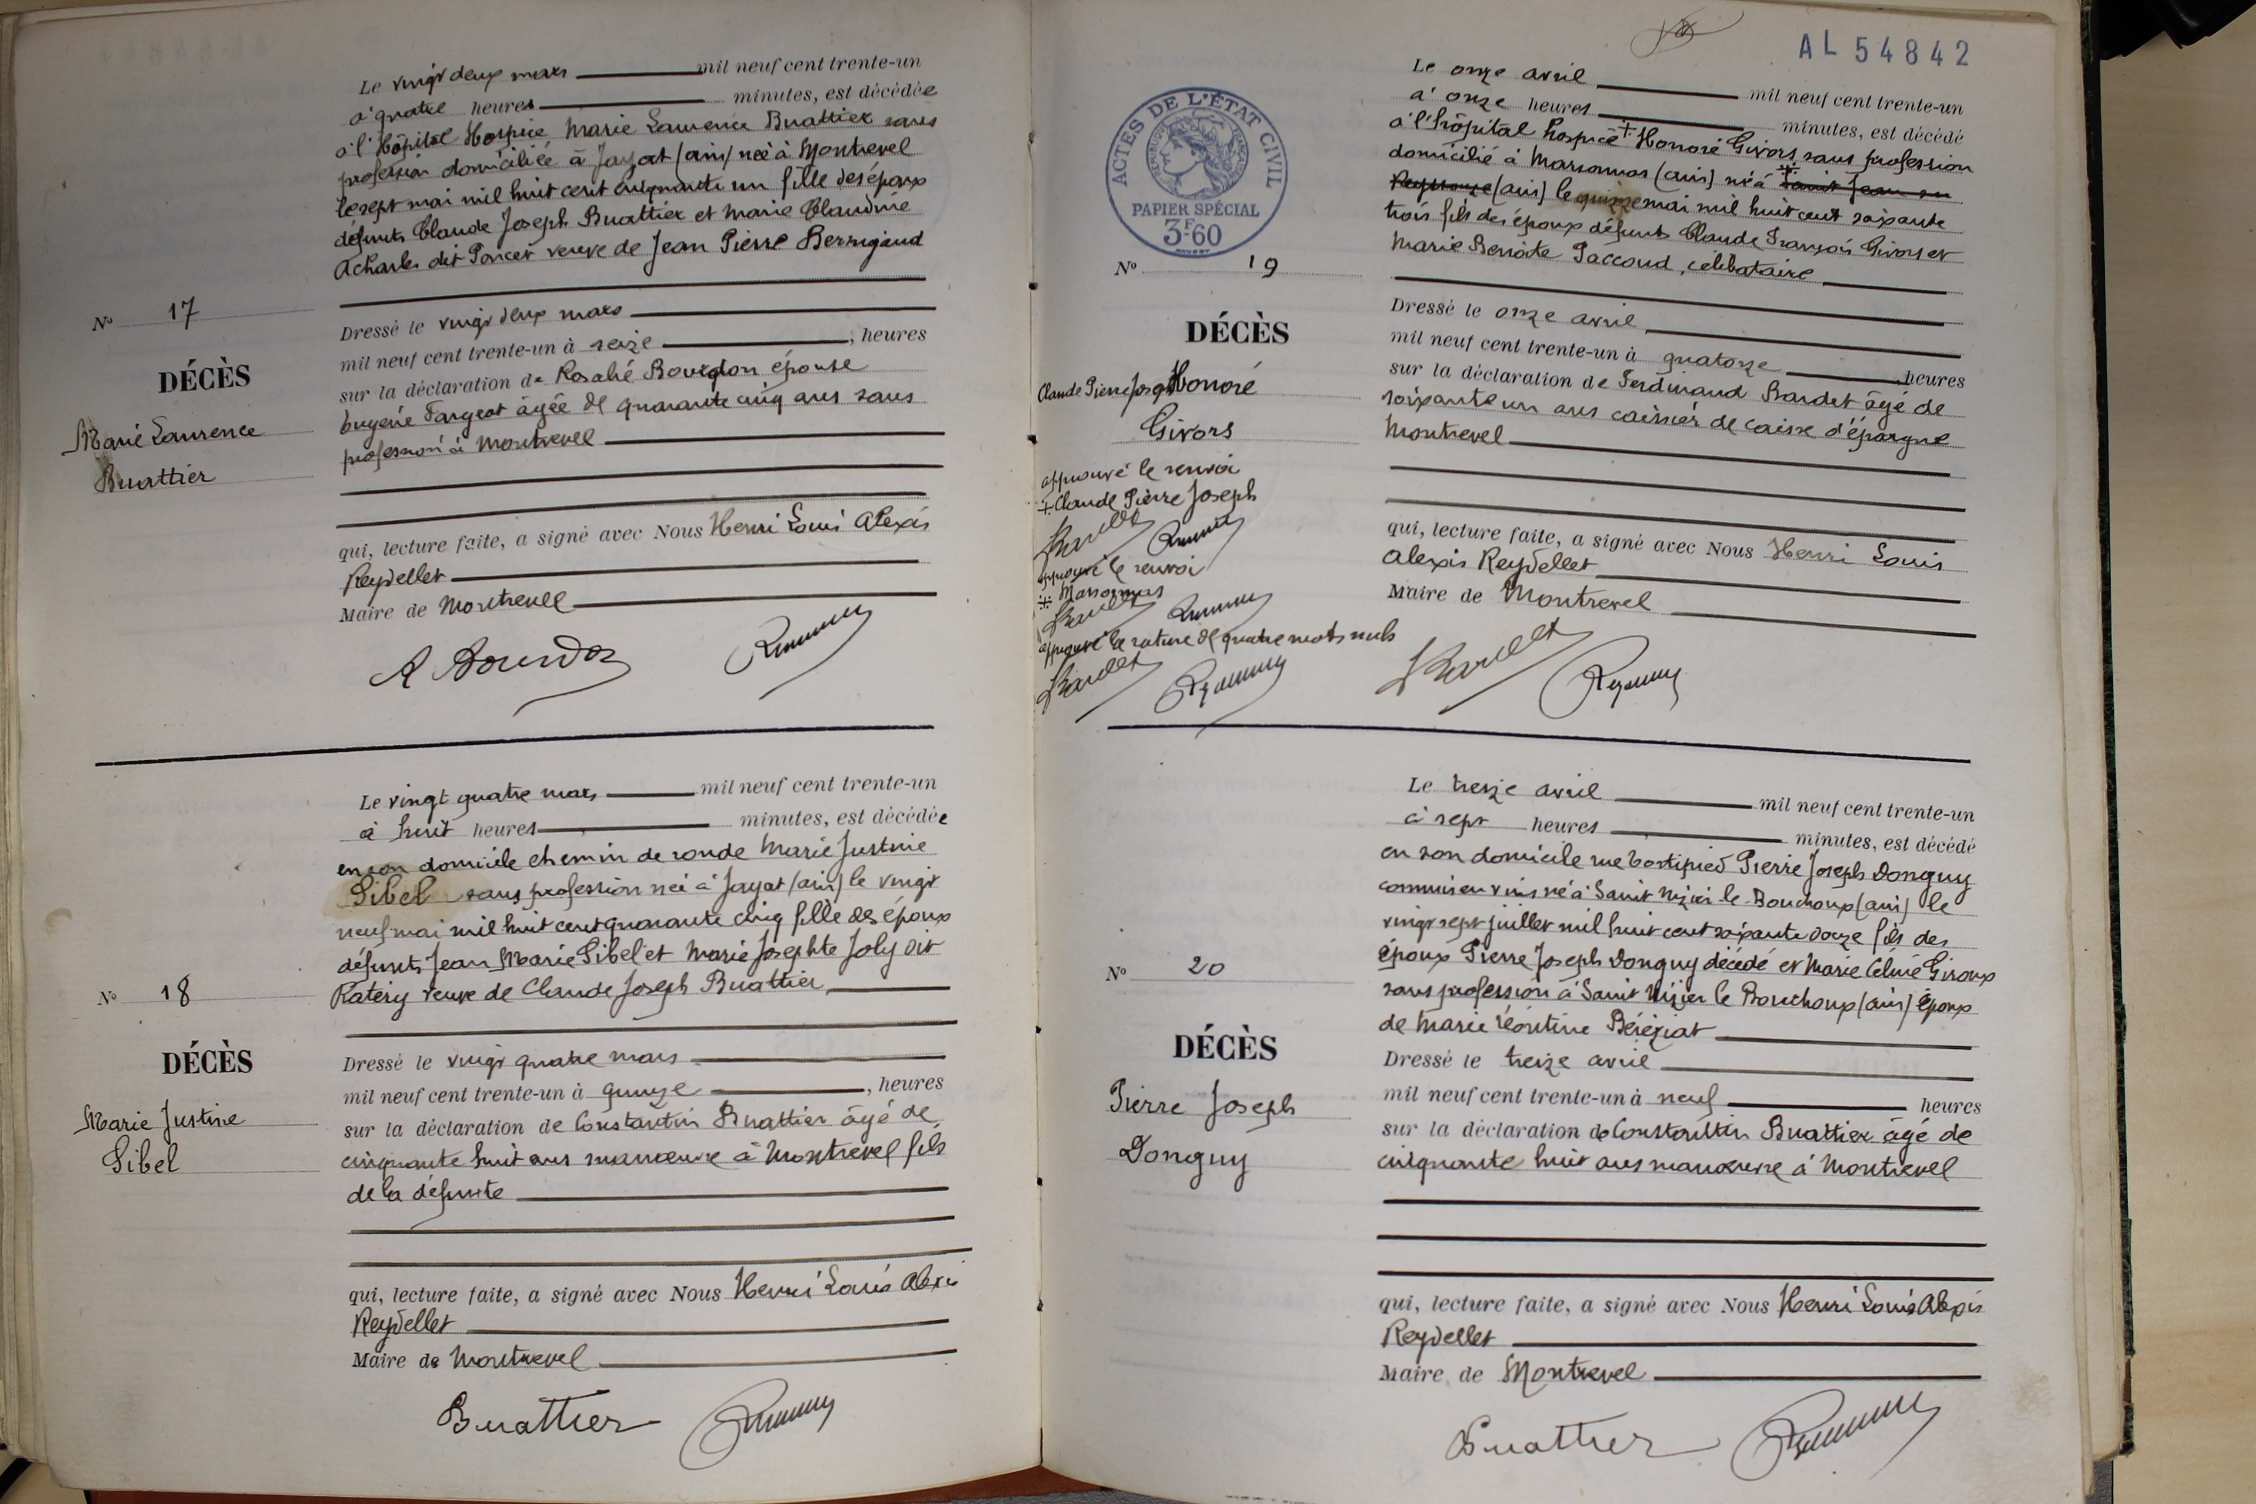 Le vingt deux mars mil neuf cent trente-un
à quatre heures minutes, est décédée
à l'Hôpital Hospice Marie Laurence Buattier sans
profession domiciliée à Jayat (ain) née à Montrevel
le sept mai mil huit cent cinquante un fille des époux
défunts Claude Joseph Buattier et Marie Claudine
Acharles dit Poncet veuve de Jean Pierre Bernigaud
No 17
DÉCÈS
Marie Laurence
Buattier
Dressé le vingt deux mars
mil neuf cent trente-un à seize , heures
sur la déclaration de Rosalie Bourdon épouse
Eugène Fargeot âgée de quarante cinq ans sans
profession à Montrevel
qui, lecture faite, a signé avec Nous Henri Louis Alexis
Reydellet
Maire de Montrevel
R Bourdon
Le vingt quatre mars mil neuf cent trente-un
à huit heures minutes, est décédée
en son domicile chemin de ronde Marie Justine
Sibel sans profession née à Jayat (ain) le vingt
neuf mai mil huit cent quarante cinq fille des époux
défunts Jean Marie Sibel et Marie Josephte Joly dit
Ratery veuve de Claude Joseph Buattier
No 18
DÉCÈS
Marie Justine
Sibel
Dressé le vingt quatre mars
mil neuf cent trente-un à quinze , heures
sur la déclaration de Constantin Buattier âgé de
cinquante huit ans manœuvre à Montrevel fils
de la défunte
qui, lecture faite, a signé avec Nous Henri Louis Alexis
Reydellet
Maire de Montrevel
Buattier
AL 54842
ACTES DE L'ÉTAT CIVIL
RÉPUBLIQUE FRANÇAISE
PAPIER SPÉCIAL
3F60
Le onze avril mil neuf cent trente-un
à onze heures minutes, est décédé
à l'hôpital hospice + Honoré Givors sans profession
domicilié à Marsonnas (ain) né à Saint Jean su
Reyssouze (ain) le quinze mai mil huit cent soixante
trois fils des époux défunts Claude François Givors et
Marie Benoite Paccoud, célibataire
No 19
DÉCÈS
Claude Pierre Joseph Honoré
Givors
approuvé le renvoi
+ Claude Pierre Joseph
Bardet
approuvé le renvoi
Marsonnas
Bardet
approuvé la rature de quatre mots nuls
Bardet
Dressé le onze avril
mil neuf cent trente-un à quatorze , heures
sur la déclaration de Ferdinand Bardet âgé de
soixante un ans caissier de caisse d'épargne
Montrevel
qui, lecture faite, a signé avec Nous Henri Louis
Alexis Reydellet
Maire de Montrevel
Bardet
Le treize avril mil neuf cent trente-un
à sept heures minutes, est décédé
en son domicile rue Pierre Joseph Donguy
commis en vins né à Saint Nizier le Bouchoux (ain) le
vingt sept juillet mil huit cent soixante douze fils des
époux Pierre Joseph Donguy décédé et Marie Celine Giroux
sans profession à Saint Nizier le Bouchoux (ain) époux
de Marie Léontine Béréziat
No 20
DÉCÈS
Pierre Joseph
Donguy
Dressé le treize avril
mil neuf cent trente-un à neuf heures
sur la déclaration de Constantin Buattier âgé de
cinquante huit ans manœuvre à Montrevel
qui, lecture faite, a signé avec Nous Henri Louis Alexis
Reydellet
Maire de Montrevel
Buattier